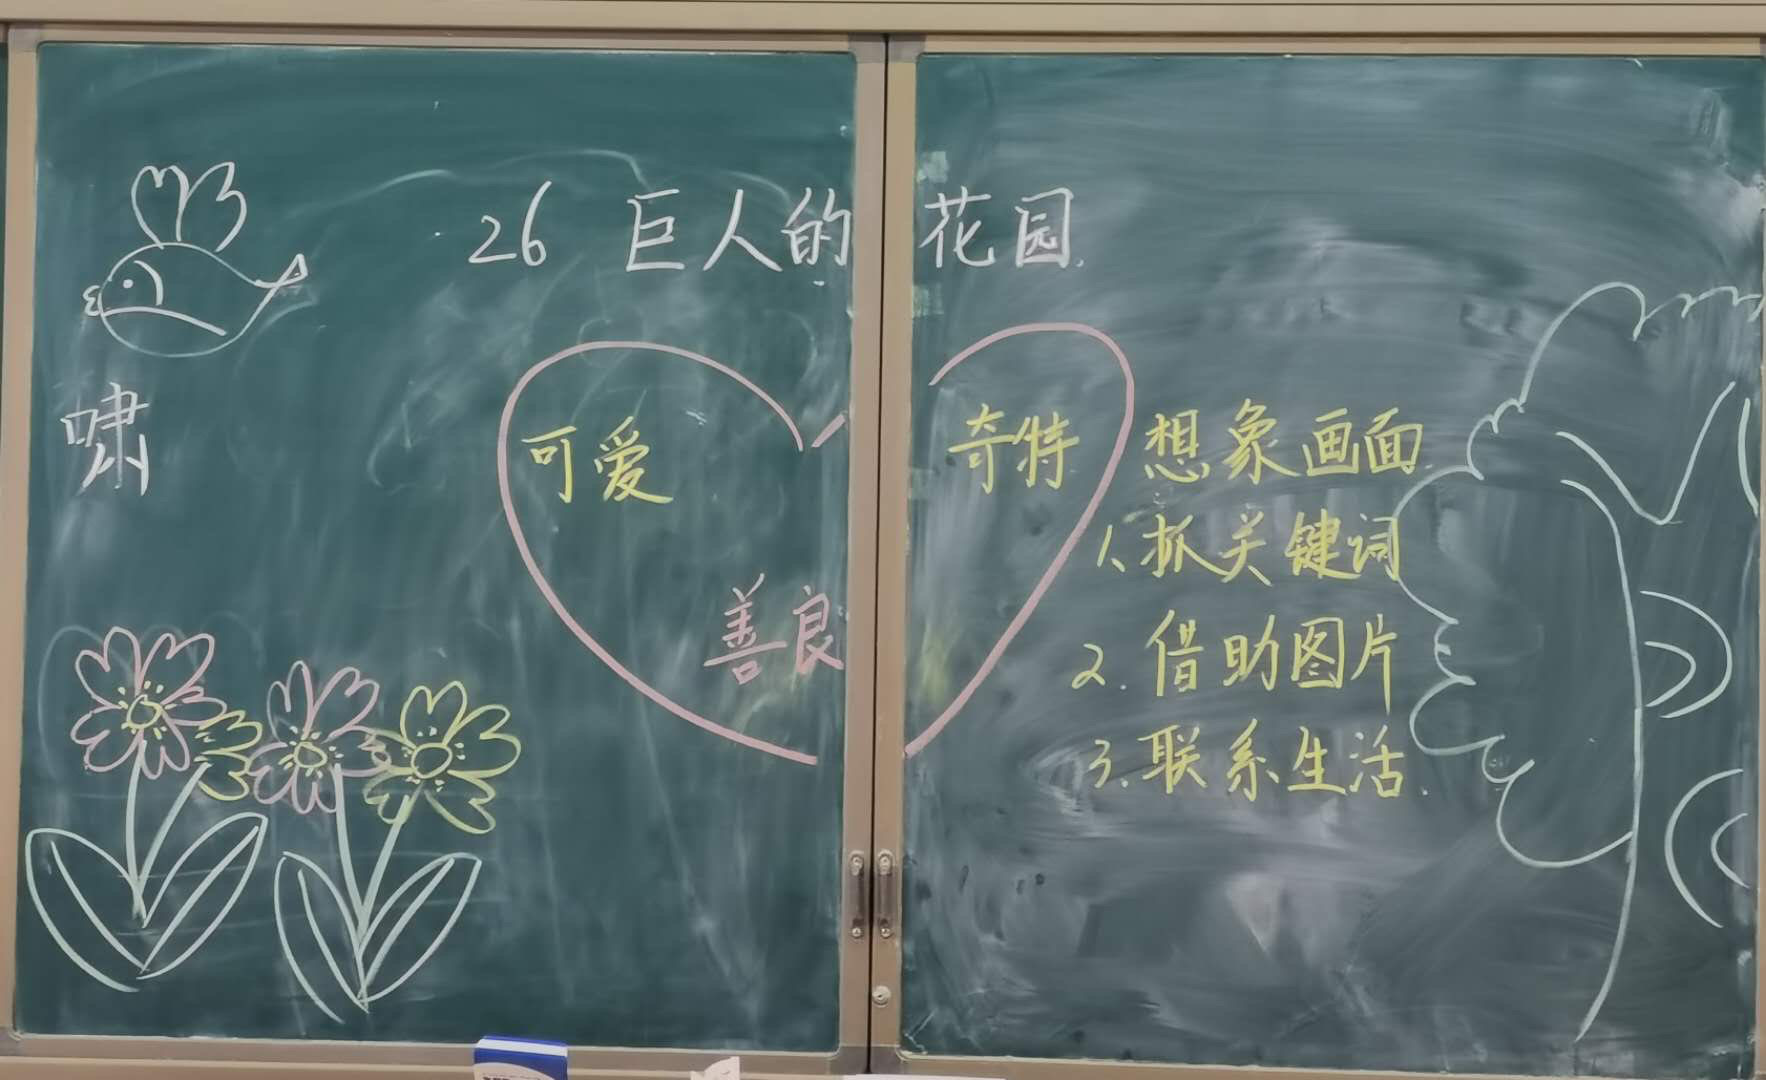 26 巨人的花园
啸
可爱 奇特
善良
想象画面
1、抓关键词
2. 借助图片
3. 联系生活.